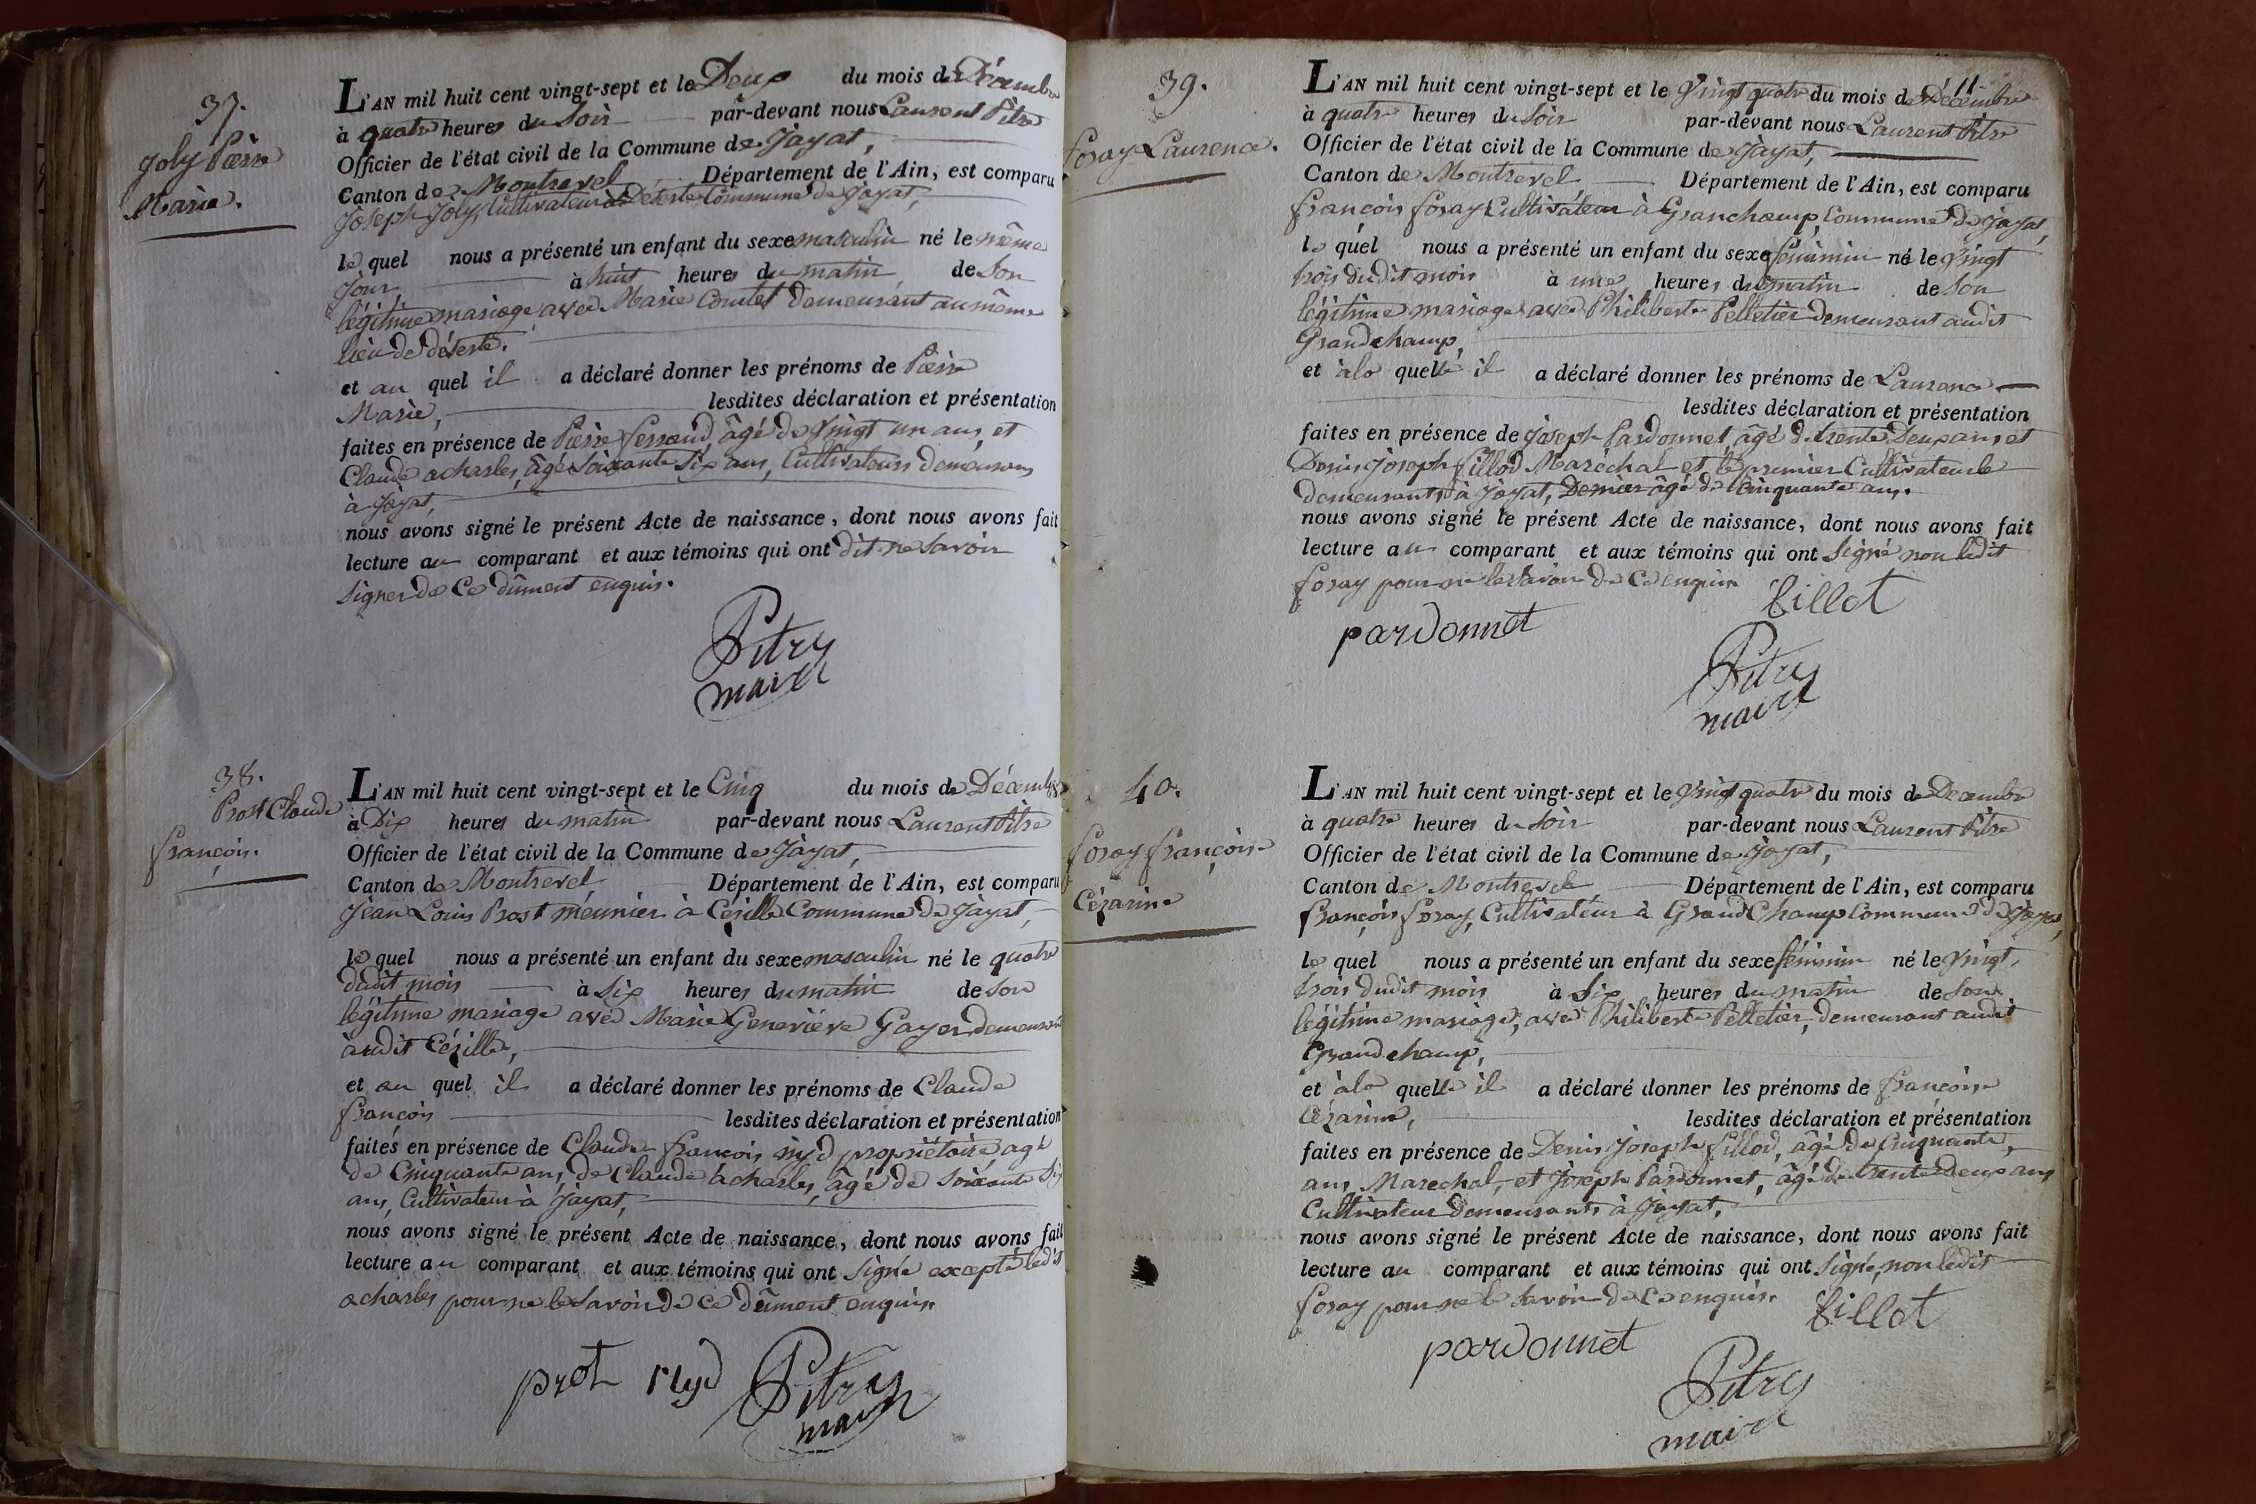 37.
Joly Pierre
Marie.
L'AN mil huit cent vingt-sept et le Deux du mois de Décembre
à quatre heures du Soir par-devant nous Laurent Pitre
Officier de l'état civil de la Commune de Jayat,
Canton de Montrevel Département de l'Ain, est comparu
Joseph Joly, Cultivateur à Déserte Commune de Jayat,
le quel nous a présenté un enfant du sexe masculin né le même
Jour, à huit heures du matin de Son
légitime mariage avec Marie Comtet demeurant au même
lieu de déserte.
et au quel il a déclaré donner les prénoms de Pierre
Marie, lesdites déclaration et présentation
faites en présence de Pierre ferraud, âgé de Vingt un ans, et
Claude acharles, âgé Soixante Six ans, Cultivateurs demeurans
à Jayat,
nous avons signé le présent Acte de naissance, dont nous avons fait
lecture au comparant et aux témoins qui ont dit ne Savoir
Signer de Ce dûment enquis.
Pitre
maire
38.
Prost Claude
françois.
L'AN mil huit cent vingt-sept et le Cinq du mois de Décembre
à Dix heures du matin par-devant nous Laurent Pitre
Officier de l'état civil de la Commune de Jayat,
Canton de Montrevel Département de l'Ain, est comparu
Jean Louis Prost meunier à Cézille Commune de Jayat,
le quel nous a présenté un enfant du sexe masculin né le quatre
dudit mois à Six heures du matin de Son
légitime mariage avec Marie Geneviéve Gayer demeurant
audit Cézille,
et au quel il a déclaré donner les prénoms de Claude
françois lesdites déclaration et présentation
faites en présence de Claude françois nyd propriétaire agé
de Cinquante ans, de Claude acharles, âgé de Soixante Six
ans, Cultivateur à Jayat,
nous avons signé le présent Acte de naissance, dont nous avons fait
lecture au comparant et aux témoins qui ont Signé excepté ledit
acharles pour ne le Savoir de ce dûment enquis.
prot nyd Pitre
maire
39.
foray Laurence.
L'AN mil huit cent vingt-sept et le Vingt quatre du mois de Décembre
à quatre heures du Soir par-devant nous Laurent Pitre
Officier de l'état civil de la Commune de Jayat,
Canton de Montrevel Département de l'Ain, est comparu
françois foray Cultivateur à Granchamp, Commune de Jayat,
le quel nous a présenté un enfant du sexe féminin né le Vingt
trois dudit mois à une heures du matin de Son
légitime mariage avec Philiberte Pelletier demeurant audit
Grandchamp,
et à la quelle il a déclaré donner les prénoms de Laurence
lesdites déclaration et présentation
faites en présence de Joseph Pardonnet, âgé de trente Deux ans et
Denis Joseph fillod Maréchal et le premier Cultivateur le
demeurants à Jayat, Dernier âgé de Cinquante ans.
nous avons signé le présent Acte de naissance, dont nous avons fait
lecture au comparant et aux témoins qui ont Signé non ledit
foray pour ne le Savoir de Ce enquis
fillot
pardonnet
Pitre
maire
40.
foray françoise
Cézarine
L'AN mil huit cent vingt-sept et le Vingt quatre du mois de Décembre
à quatre heures du Soir par-devant nous Laurent Pitre
Officier de l'état civil de la Commune de Jayat,
Canton de Montrevel Département de l'Ain, est comparu
françois foray, Cultivateur à Grand Champ Commune de Jayat,
le quel nous a présenté un enfant du sexe féminin né le Vingt,
trois dudit mois à Six heures du matin de Son
légitime mariage, avec Philiberte Pelletier, demeurant audit
Grandchamp,
et à la quelle il a déclaré donner les prénoms de françoise
Cézarine, lesdites déclaration et présentation
faites en présence de Denis Joseph fillod, âgé de Cinquante,
ans, Marechal, et Joseph Pardonnet, âgé de trente deux ans
Cultivateur demeurants à Jayat,
nous avons signé le présent Acte de naissance, dont nous avons fait
lecture au comparant et aux témoins qui ont Signé, non ledit
foray pour ne le Savoir de Ce enquis.
fillot
pardonnet
Pitre
maire